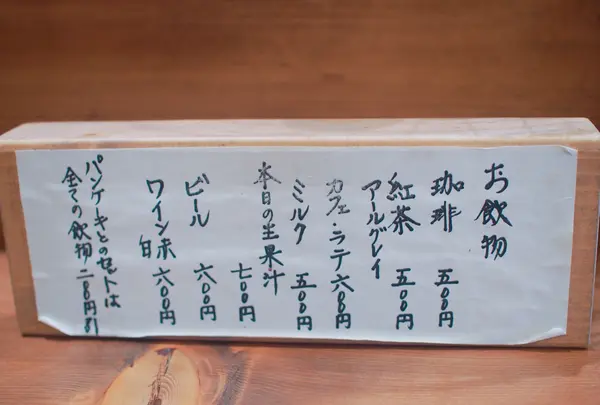 お飲物
珈琲 五〇〇円
紅茶 五〇〇円
アールグレイ
カフェ・ラテ 六〇〇円
ミルク 五〇〇円
本日の生果汁
七〇〇円
ビール 六〇〇円
ワイン 赤 白 六〇〇円
パンケーキとのセットは
全ての飲物二〇〇円引